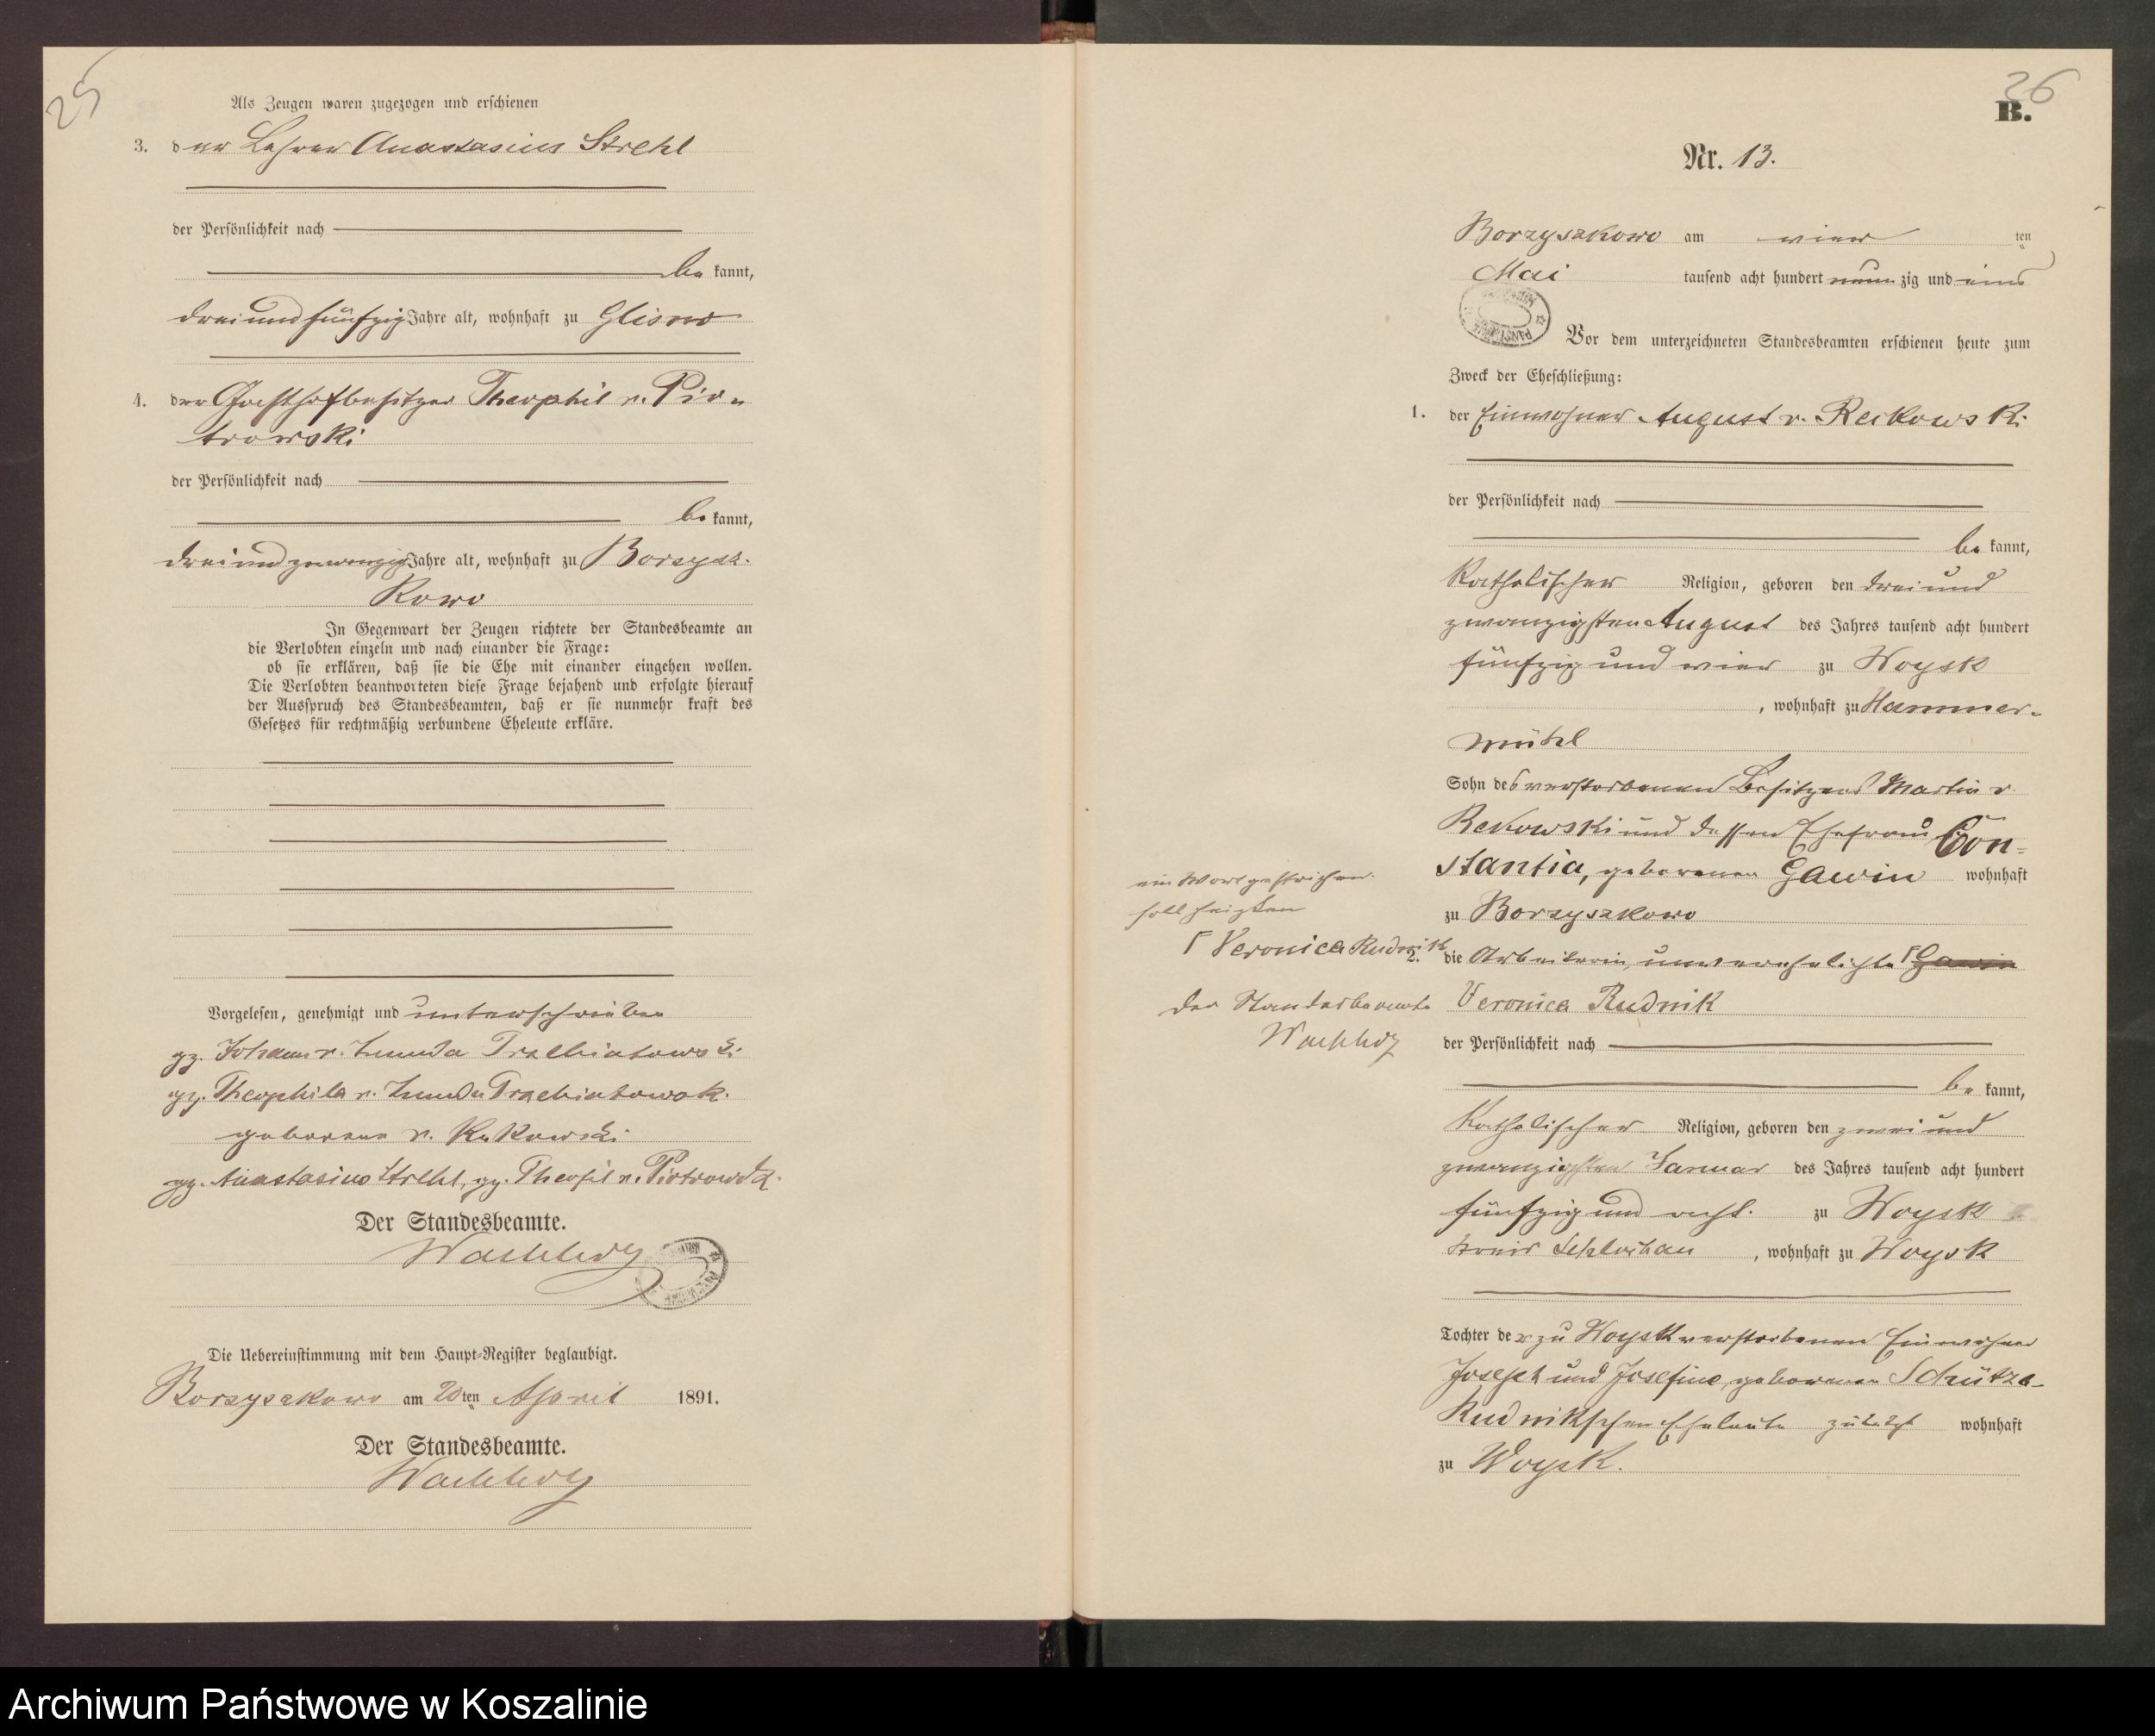 25
Als Zeugen waren zugezogen und erschienen
3. der Lehrer Anastasius Strehl
der Persönlichkeit nach
be kannt,
dreiundfünfzig Jahre alt, wohnhaft zu Glisno
4. der Gasthofbesitzer Theophil v. Pio-
trowski
der Persönlichkeit nach
be kannt,
dreiundzwanzig Jahre alt, wohnhaft zu Borzysz-
kowo
In Gegenwart der Zeugen richtete der Standesbeamte an
die Verlobten einzeln und nach einander die Frage:
ob sie erklären, daß sie die Ehe mit einander eingehen wollen.
Die Verlobten beantworteten diese Frage bejahend und erfolgte hierauf
der Ausspruch des Standesbeamten, daß er sie nunmehr kraft des
Gesetzes für rechtmäßig verbundene Eheleute erkläre.
Vorgelesen, genehmigt und unterschrieben
gz. Johann v.
gz. Theophila v.
geborene v.
gz. Anastasius Strehl, gz. Theofil v. Piotrowski
Der Standesbeamte.
Wachholz
Die Uebereinstimmung mit dem Haupt-Register beglaubigt.
Borzyszkowo am 20ten April 1891.
Der Standesbeamte.
Wachholz
26
B.
Nr. 13.
Borzyszkowo am vier ten
Mai tausend acht hundert neun zig und eins
Vor dem unterzeichneten Standesbeamten erschienen heute zum
Zweck der Eheschließung:
1. der Einwohner August v. Reikowski
der Persönlichkeit nach
be kannt,
Katholischer Religion, geboren den drei und
zwanzigsten August des Jahres tausend acht hundert
fünfzig und vier zu Woysk
, wohnhaft zu Hammer-
mühl
Sohn des verstorbenen Besitzers Martin v.
Rekowski und dessen Ehefrau Con-
stantia, geborenen Gawin wohnhaft
zu Borzyszkowo
ein Wort gestrichen.
soll heißen
Γ Veronica Rudnik
Der Standesbeamte
Wachholz
2. die Arbeiterin, unverehelichte Γ Gawin
Veronica Rudnik
der Persönlichkeit nach
be kannt,
Katholischer Religion, geboren den zwei und
zwanzigsten Januar des Jahres tausend acht hundert
fünfzig und acht. zu Woysk
Kreis Schlochau , wohnhaft zu Woysk
Tochter der zu Woysk verstorbenen Einwohner
Joseph und Josefine, geborenen Schütza-
Rudnikschen Eheleute zuletzt wohnhaft
zu Woysk.
Archiwum Państwowe w Koszalinie